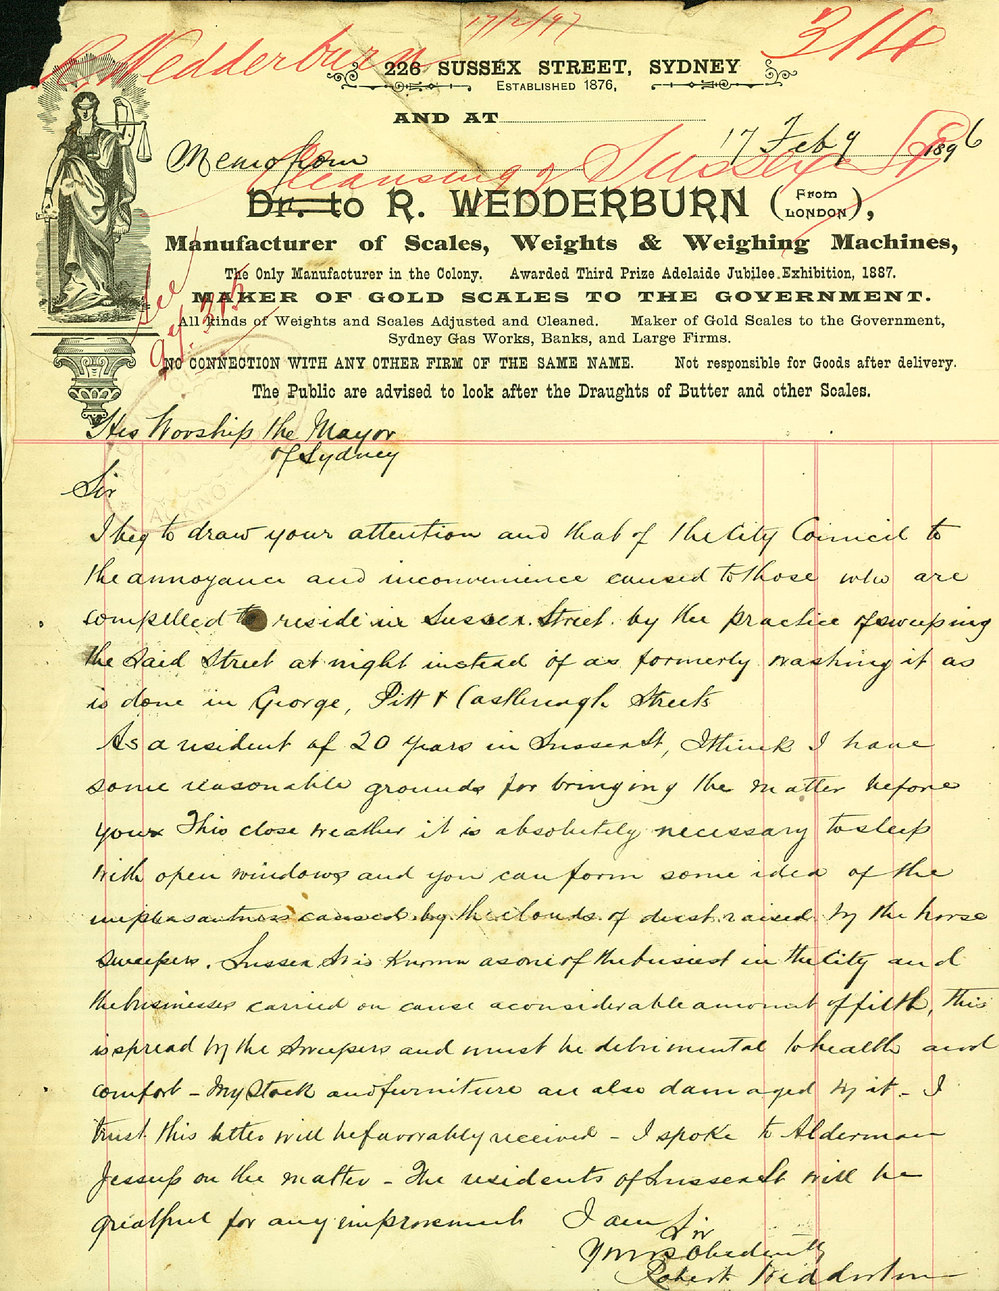 R. Wedderburn 17/2/97 3/14
226 SUSSEX STREET, SYDNEY
ESTABLISHED 1876,
AND AT
17 Feby 1896
Memo from
Cleansing of Sussex St
Dr. to R. WEDDERBURN (From LONDON),
Manufacturer of Scales, Weights & Weighing Machines,
The Only Manufacturer in the Colony. Awarded Third Prize Adelaide Jubilee Exhibition, 1887.
MAKER OF GOLD SCALES TO THE GOVERNMENT.
All kinds of Weights and Scales Adjusted and Cleaned. Maker of Gold Scales to the Government,
Sydney Gas Works, Banks, and Large Firms.
See
NO CONNECTION WITH ANY OTHER FIRM OF THE SAME NAME. Not responsible for Goods after delivery.
The Public are advised to look after the Draughts of Butter and other Scales.
His Worship the Mayor
of Sydney
Sir
I beg to draw your attention and that of the City Council to
the annoyance and inconvenience caused to those who are
compelled to reside in Sussex Street by the practice of sweeping
the said Street at night instead of as formerly washing it as
is done in George, Pitt & Castlereagh Streets
As a resident of 20 years in Sussex St, I think I have
some reasonable grounds for bringing the matter before
you. This close weather it is absolutely necessary to sleep
with open windows and you can form some idea of the
unpleasantness caused by the clouds of dust raised by the horse
sweepers. Sussex St is known as one of the busiest in the City and
the businesses carried on cause a considerable amount of filth, this
is spread by the Sweepers and must be detrimental to health and
comfort - My Stock and furniture are also damaged by it - I
trust this letter will be favorably received - I spoke to Alderman
Jessup on the matter - The residents of Sussex St will be
greatful for any improvement I am Sir
Yours Obediently
Robert Wedderburn